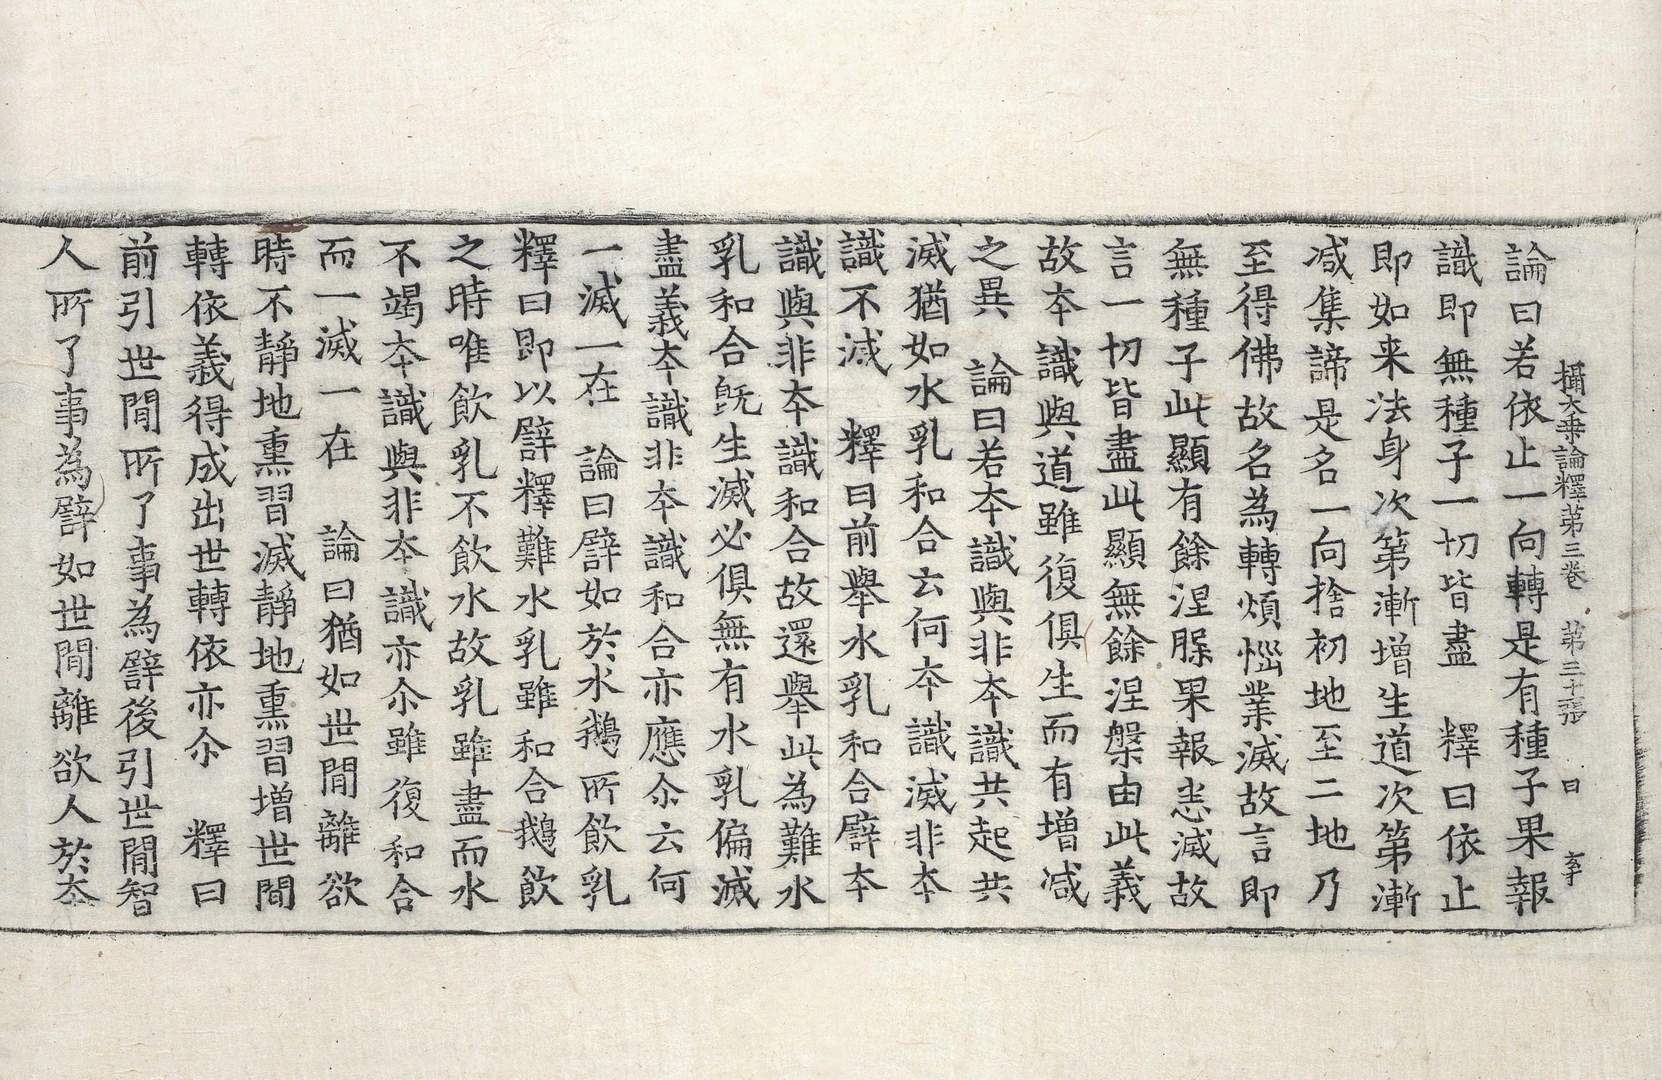 攝大乗論釋第三卷　第三十張　日　李
論曰若依止一向轉是有種子果報
識即無種子一切皆盡　釋曰依止
即如来法身次第漸增生道次第漸
減集諦是名一向捨初地至二地乃
至得佛故名為轉煩惱業滅故言即
無種子此顯有餘涅槃果報悉滅故
言一切皆盡此顯無餘涅槃由此義
故夲識與道雖復俱生而有增減
之異　論曰若夲識與非夲識共起共
滅猶如水乳和合云何夲識滅非夲
識不滅　釋曰前舉水乳和合譬夲
識與非夲識和合故還舉此為難水
乳和合旣生滅必俱無有水乳偏滅
盡義夲識非夲識和合亦應尒云何
一滅一在　論曰譬如於水鵝所飲乳
釋曰即以譬釋難水乳雖和合鵝飲
之時唯飲乳不飲水故乳雖盡而水
不竭夲識與非夲識亦尒雖復和合
而一滅一在　論曰猶如世間離欲
時不靜地熏習滅靜地熏習增世間
轉依義得成出世轉依亦尒　釋曰
前引世間所了事為譬後引世間智
人所了事為譬如世間離欲人於夲